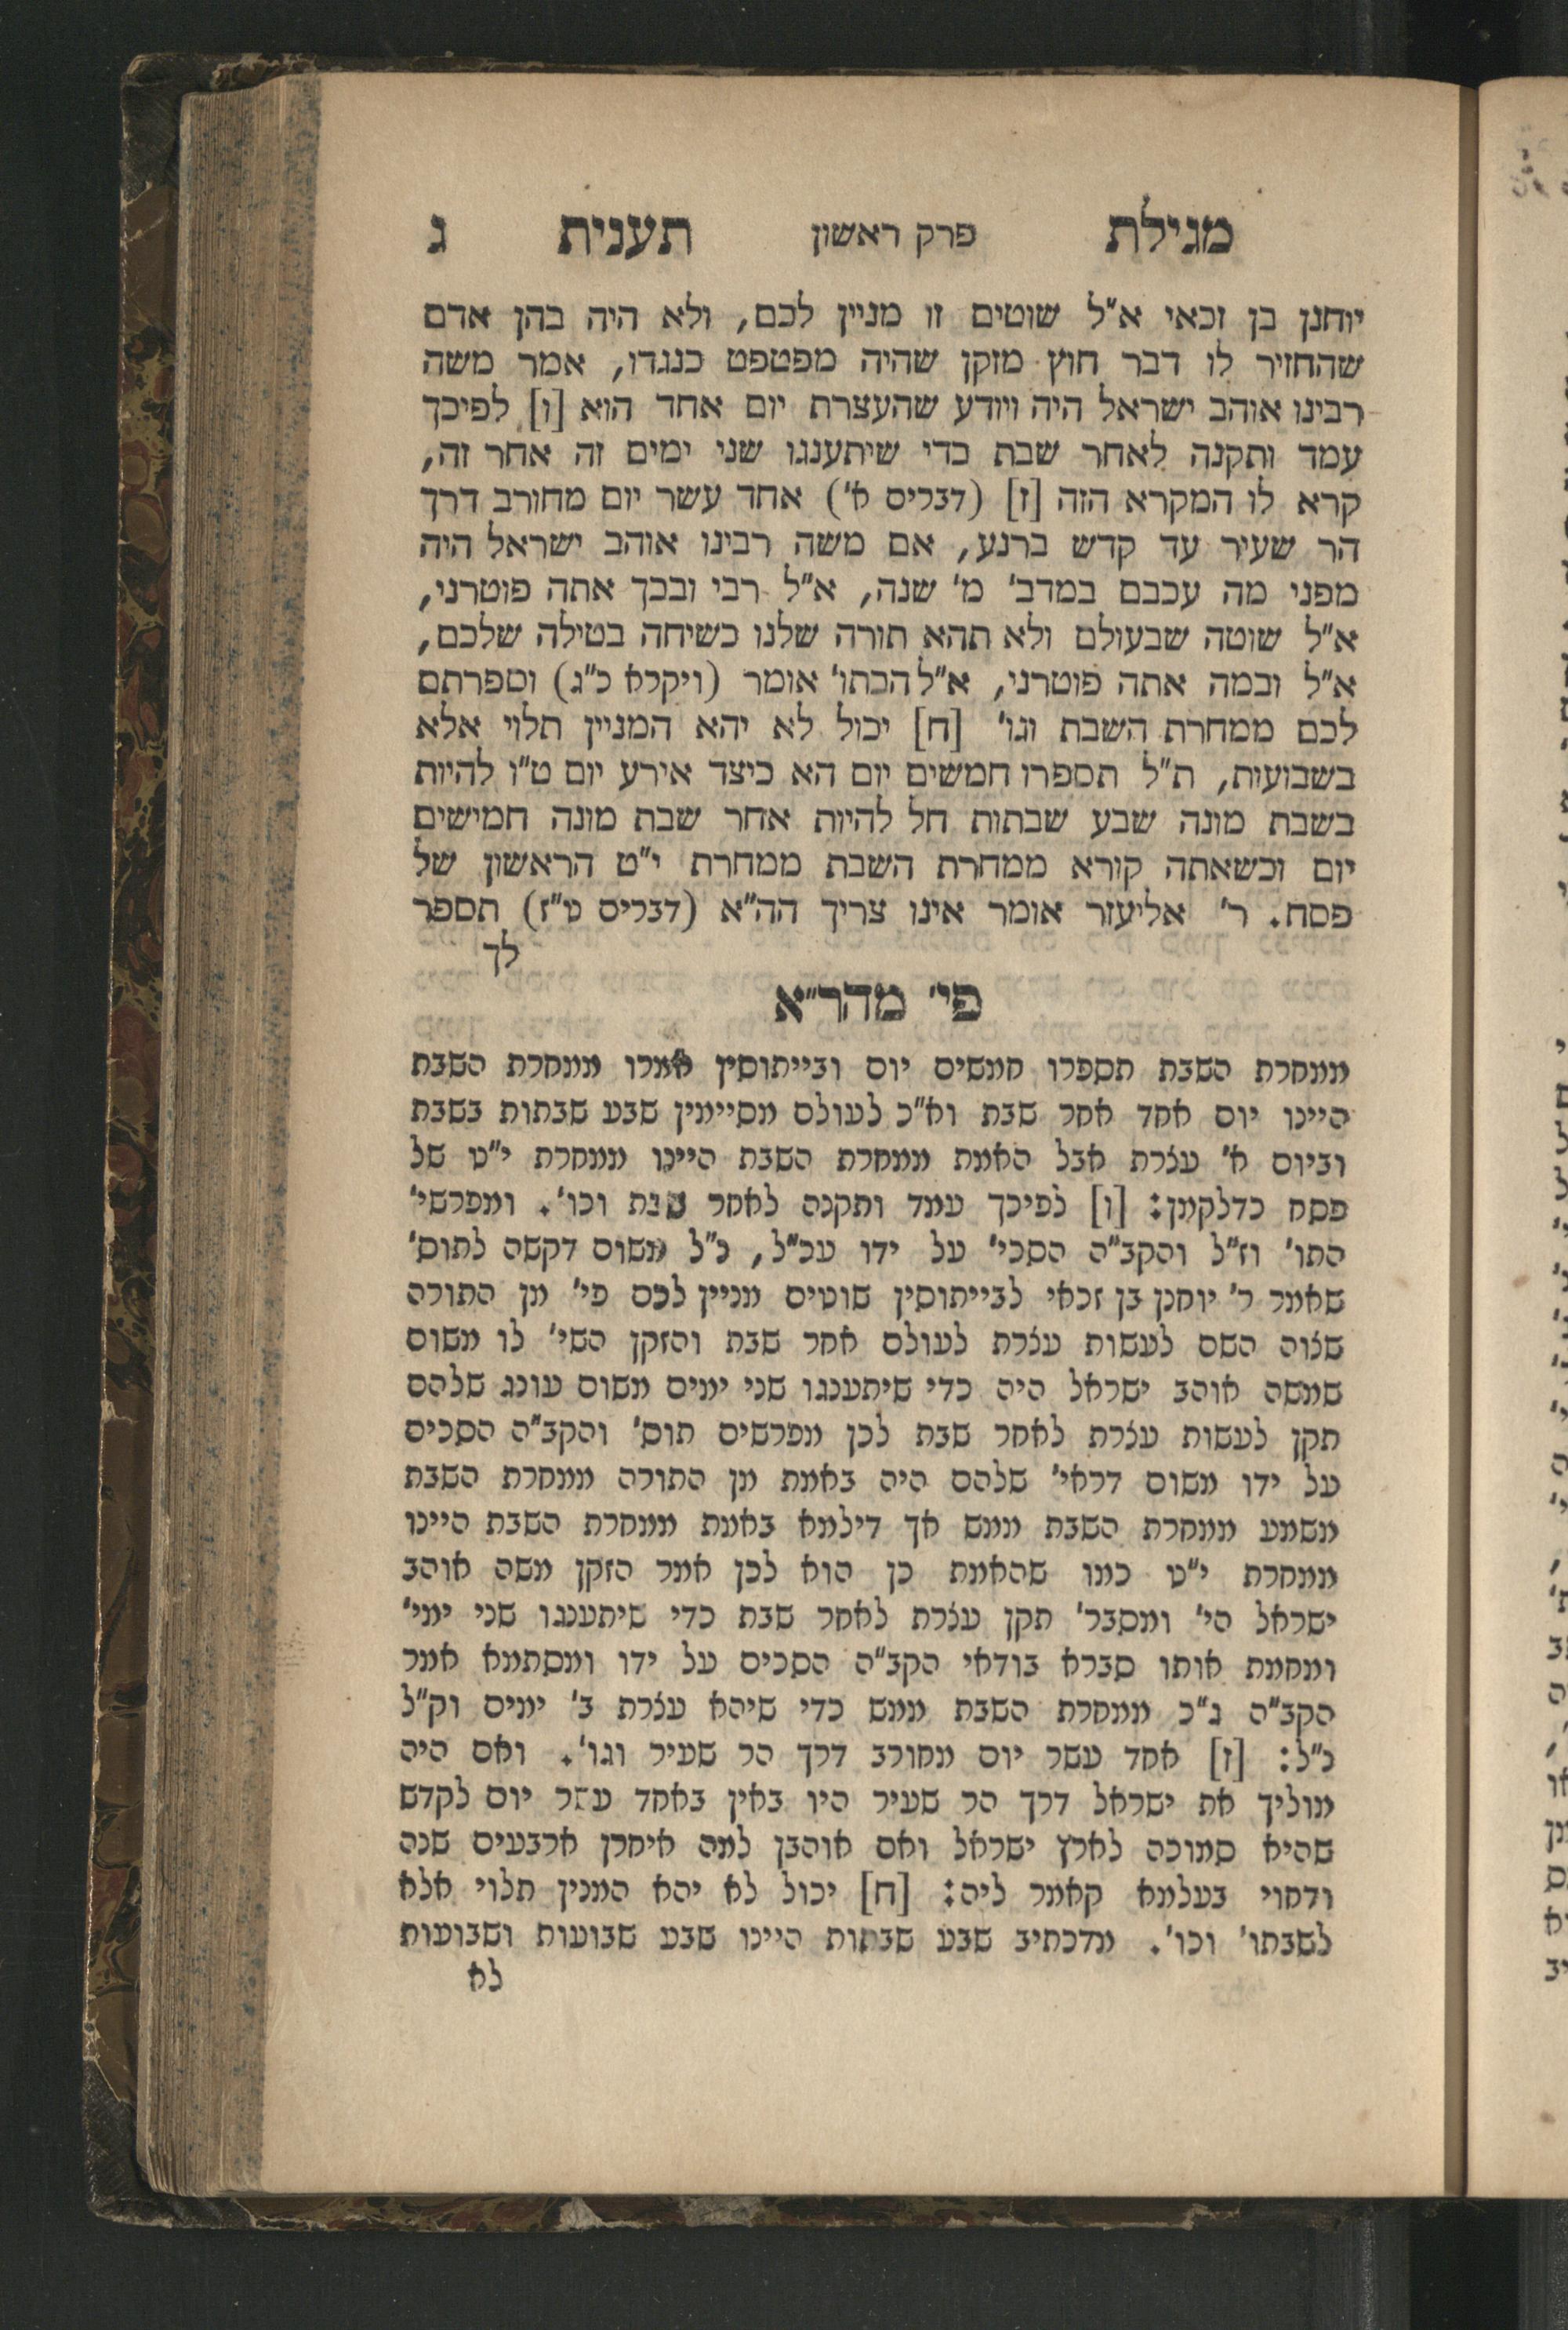 מגילת פרק ראשון תענית ג
יוחנן בן זכאי א"ל שוטים זו מניין לכם, ולא היה בהן אדם
שהחזיר לו דבר חוץ מזקן שהיה מפטפט כנגדו, אמר משה
רבינו אוהב ישראל היה ויודע שהעצרת יום אחד הוא [ו] לפיכך
עמד ותקנה לאחר שבת כדי שיתענגו שני ימים זה אחר זה,
קרא לו המקרא הזה [ז] (דברים א') אחד עשר יום מחורב דרך
הר שעיר עד קדש ברנע, אם משה רבינו אוהב ישראל היה
מפני מה עכבם במדב' מ' שנה, א"ל רבי ובכך אתה פוטרני,
א"ל שוטה שבעולם ולא תהא תורה שלנו כשיחה בטילה שלכם,
א"ל ובמה אתה פוטרני, א"ל הכתו' אומר (ויקרא כ"ג) וספרתם
לכם ממחרת השבת וגו' [ח] יכול לא יהא המניין תלוי אלא
בשבועות, ת"ל תספרו חמשים יום הא כיצד אירע יום ט"ו להיות
בשבת מונה שבע שבתות חל להיות אחר שבת מונה חמישים
יום וכשאתה קורא ממחרת השבת ממחרת י"ט הראשון של
פסח. ר' אליעזר אומר אינו צריך הה"א (דברים ט"ז) תספר
לך
פי' מהר"א
ממחרת השבת תספרו חמשים יום ובייתוסין אמרו ממחרת השבת
היינו יום אחד אחר שבת וא"כ לעולם מסיימין שבע שבתות בשבת
וביום א' עצרת אבל האמת ממחרת השבת היינו ממחרת י"ט של
פסח כדלקמן: [ו] לפיכך עמד ותקנה לאחר שבת וכו'. ומפרשי'
התו' וז"ל והקב"ה הסכי' על ידו עכ"ל, נ"ל משום דקשה לתוס'
שאמר ר' יוחנן בן זכאי לבייתוסין שוטים מניין לכם פי' מן התורה
שצוה השם לעשות עצרת לעולם אחר שבת והזקן השי' לו משום
שמשה אוהב ישראל היה כדי שיתענגו שני ימים משום עונג שלהם
תקן לעשות עצרת לאחר שבת לכן מפרשים תוס' והקב"ה הסכים
על ידו משום דראי' שלהם היה באמת מן התורה ממחרת השבת
משמע ממחרת השבת ממש אך דילמא באמת ממחרת השבת היינו
ממחרת י"ט כמו שהאמת כן הוא לכן אמר הזקן משה אוהב
ישראל הי' ומסבר' תקן עצרת לאחר שבת כדי שיתענגו שני ימי'
ומחמת אותו סברא בודאי הקב"ה הסכים על ידו ומסתמא אמר
הקב"ה ג"כ ממחרת השבת ממש כדי שיהא עצרת ב' ימים וק"ל
נ"ל: [ז] אחד עשר יום מחורב דרך הר שעיר וגו'. ואם היה
מוליך את ישראל דרך הר שעיר היו באין באחד עשר יום לקדש
שהיא סמוכה לארץ ישראל ואם אוהבן למה איחרן ארבעים שנה
ודחוי בעלמא קאמר ליה: [ח] יכול לא יהא המנין תלוי אלא
לשבתו' וכו'. מדכתיב שבע שבתות היינו שבע שבועות ושבועות
לא